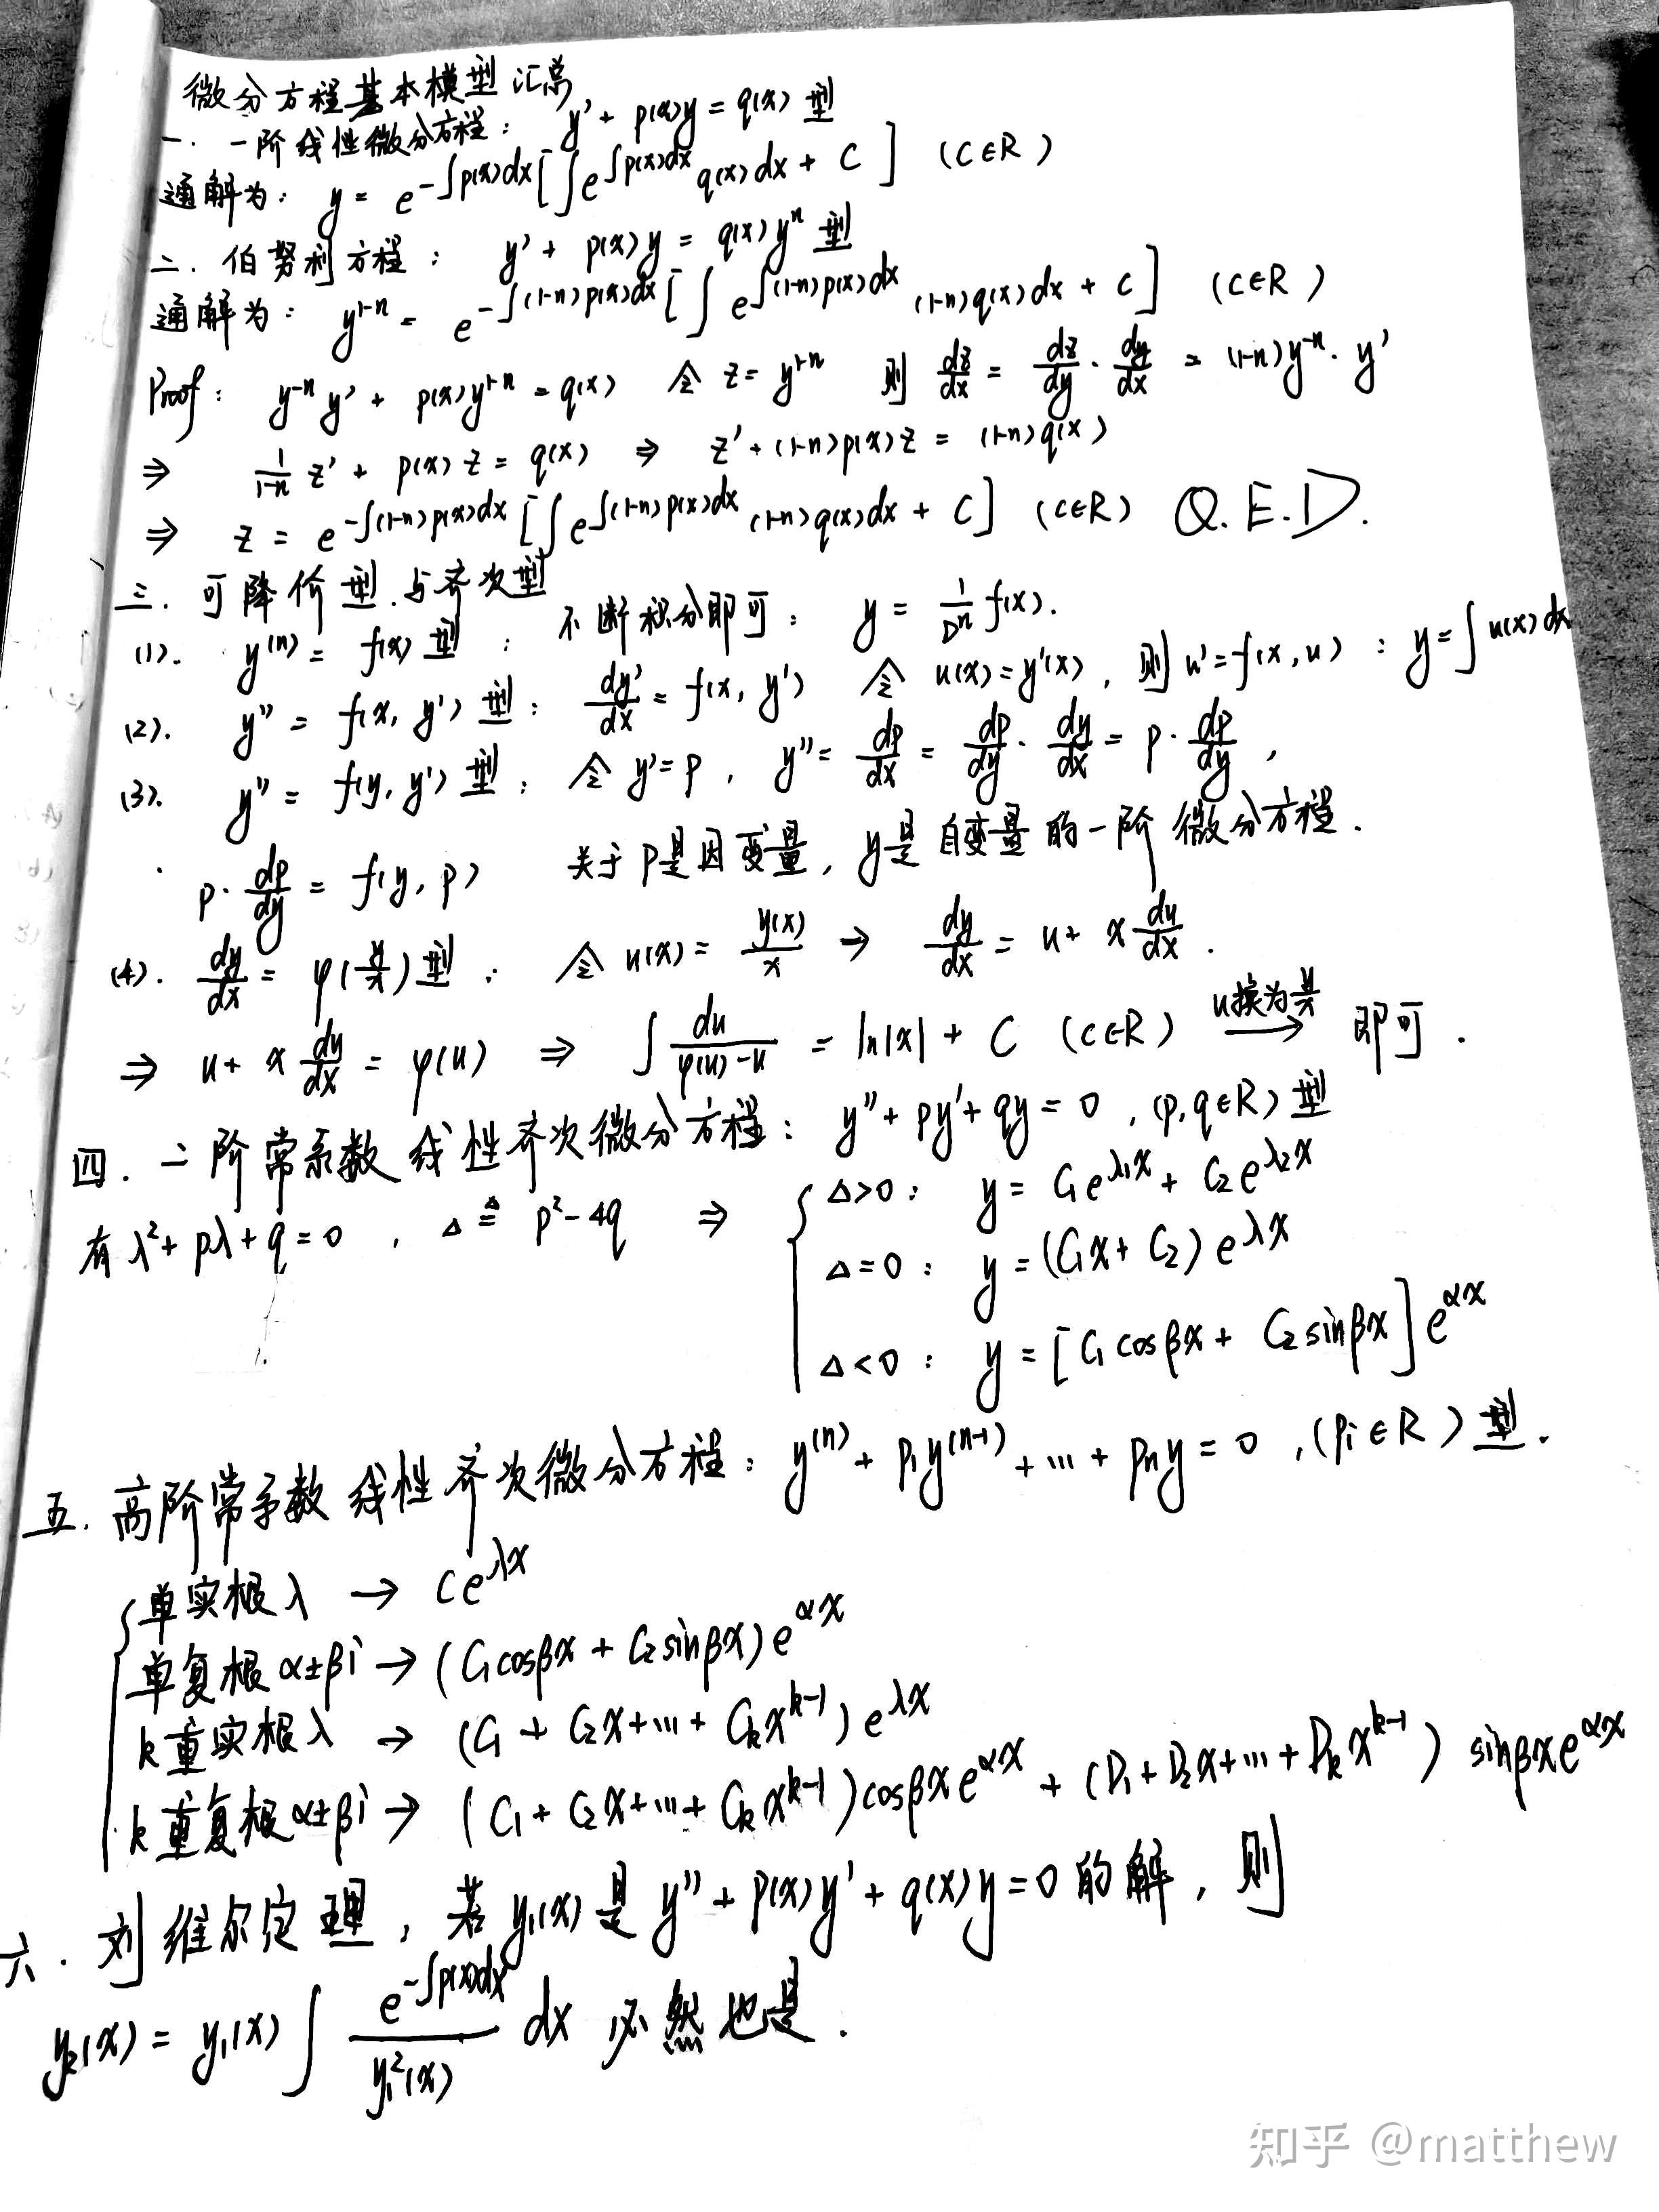 微分方程基本模型汇总
一. 一阶线性微分方程: y' + p(x)y = q(x) 型
通解为: y = e^{-∫p(x)dx}[∫e^{∫p(x)dx} q(x)dx + C] (C∈R)
二. 伯努利方程: y' + p(x)y = q(x)y^n 型
通解为: y^{1-n} = e^{-∫(1-n)p(x)dx}[∫e^{∫(1-n)p(x)dx} (1-n)q(x)dx + C] (C∈R)
Proof: y^{-n}y' + p(x)y^{1-n} = q(x) 令 z = y^{1-n} 则 dz/dx = dz/dy · dy/dx = (1-n)y^{-n}·y'
⇒ 1/(1-n) z' + p(x)z = q(x) ⇒ z' + (1-n)p(x)z = (1-n)q(x)
⇒ z = e^{-∫(1-n)p(x)dx}[∫e^{∫(1-n)p(x)dx} (1-n)q(x)dx + C] (C∈R) Q.E.D.
三. 可降价型与齐次型
(1). y^{(n)} = f(x) 型: 不断积分即可: y = 1/D^n f(x).
(2). y'' = f(x, y') 型: dy'/dx = f(x, y') 令 u(x) = y'(x), 则 u' = f(x, u): y = ∫u(x)dx
(3). y'' = f(y, y') 型: 令 y' = p, y'' = dp/dx = dp/dy · dy/dx = p · dp/dy,
p · dp/dy = f(y, p) 关于p是因变量, y是自变量的一阶微分方程.
(4). dy/dx = φ(y/x) 型: 令 u(x) = y(x)/x → dy/dx = u + x du/dx.
⇒ u + x du/dx = φ(u) ⇒ ∫ du/(φ(u)-u) = ln|x| + C (C∈R) u换为y/x → 即可.
四. 二阶常系数线性齐次微分方程: y'' + py' + qy = 0, (p, q∈R) 型
有 λ² + pλ + q = 0, Δ ≜ p² - 4q ⇒ { Δ>0: y = C₁e^{λ₁x} + C₂e^{λ₂x}
Δ=0: y = (C₁x + C₂)e^{λx}
Δ<0: y = [C₁cosβx + C₂sinβx]e^{αx}
五. 高阶常系数线性齐次微分方程: y^{(n)} + p₁y^{(n-1)} + ... + pₙy = 0, (pᵢ∈R) 型.
{ 单实根λ → Ce^{λx}
单复根α±βi → (C₁cosβx + C₂sinβx)e^{αx}
k重实根λ → (C₁ + C₂x + ... + Cₖx^{k-1})e^{λx}
k重复根α±βi → (C₁ + C₂x + ... + Cₖx^{k-1})cosβx e^{αx} + (D₁ + D₂x + ... + Dₖx^{k-1}) sinβx e^{αx}
六. 刘维尔定理, 若y₁(x)是 y'' + p(x)y' + q(x)y = 0 的解, 则
y₂(x) = y₁(x)∫ e^{-∫p(x)dx}/y₁²(x) dx 必然也是.
知乎 @matthew